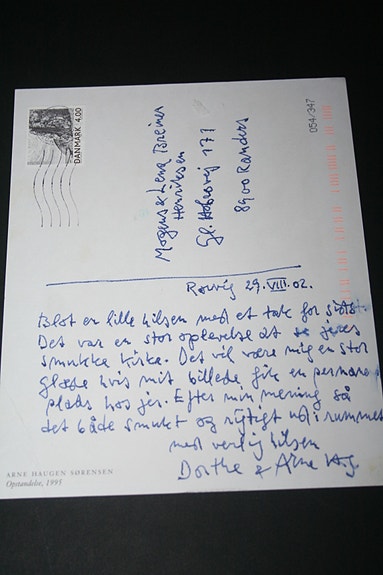 DANMARK 4.00
054/347
Mogens & Lena Breiner
Henriksen
Gl. Hobrovej 171
8900 Randers
Rørvig 29.VIII.02.
Blot en lille hilsen med et tak for sidst.
Det var en stor oplevelse at se jeres
smukke kirke. Det vil være mig en stor
glæde hvis mit billede fik en permanen
plads hos jer. Efter min mening så
det både smukt og rigtigt ud i rummet
med venlig hilsen
Dorthe & Arne H.S.
ARNE HAUGEN SØRENSEN
Opstandelse, 1995